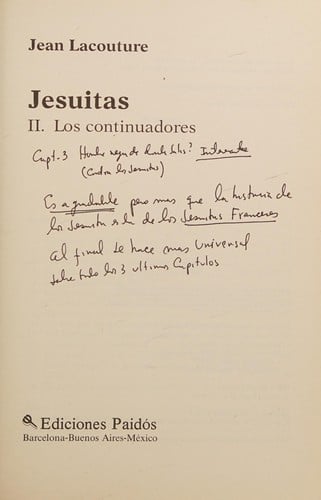 Jean Lacouture
Jesuitas
II. Los continuadores
Capt. 3 Hombres negros de dónde salís? Interesante
(Contra los Jesuitas)
Es agradable pero mas que la historia de
los Jesuitas es la de los Jesuitas Franceses
al final se hace mas universal
sobre todo los 3 ultimos Capitulos
Ediciones Paidós
Barcelona-Buenos Aires-México